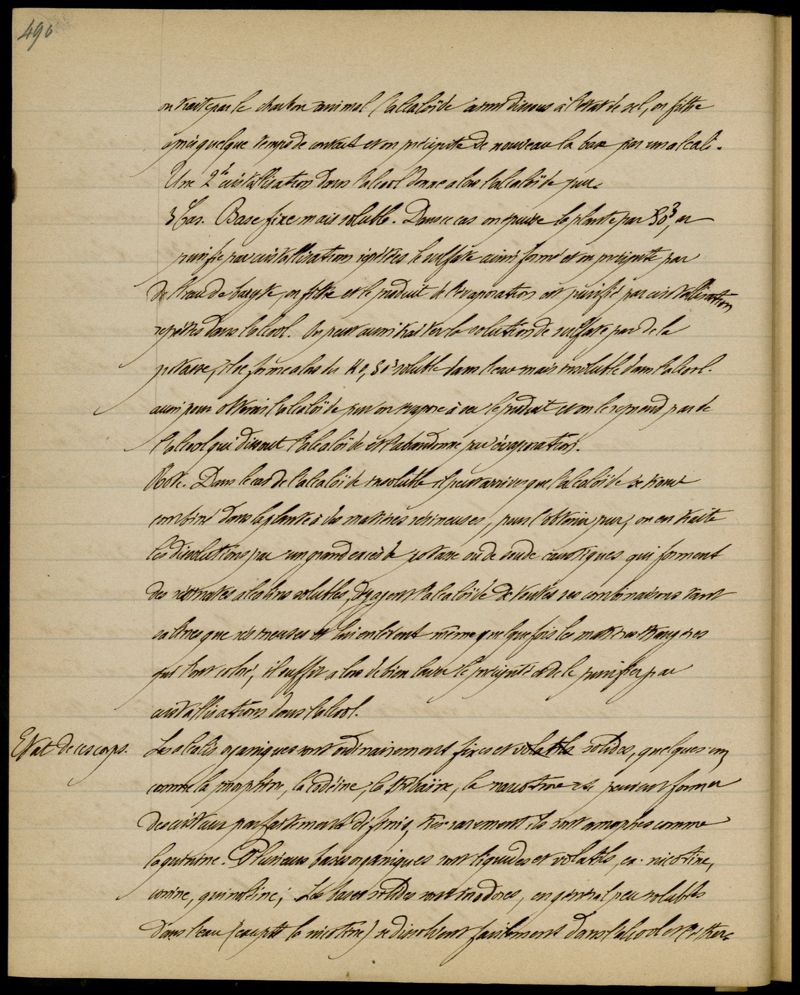 490
on traite par le charbon animal l'alcaloïde ainsi dissous à l'état de sel, on filtre
après quelque temps de contact et on précipite de nouveau la base par un alcali.
Une 2e cristallisation dans l'alcool donne alors l'alcaloïde pur.
3e Cas. Base fixe mais soluble. Dans ce cas on épuise la plante par SO3, on
purifie par cristallisation répétées le sulfate ainsi formé et on précipite par
de l'eau de baryte, on filtre et le produit de l'évaporation est purifié par cristallisation
répétées dans l'alcool. On peut aussi traiter la solution de sulfate par de la
potasse, il se forme alors du KO, SO3 soluble dans l'eau mais insoluble dans l'alcool.
aussi pour obtenir l'alcaloïde pur on évapore à sec le produit et on le reprend par de
l'alcool qui dissout l'alcaloïde et l'abandonne par évaporation.
Nota. Dans le cas de l'alcaloïde insoluble il peut arriver que l'alcaloïde se trouve
combiné dans la plante à des matières résineuses, pour l'obtenir pur, on en traite
les dissolutions par un grand excès de potasse ou de soude caustiques qui forment
des résinates alcalins solubles, dégagent l'alcaloïde de toutes ses combinaisons tant
salines que résineuses et lui enlèvent même quelquefois les matières étrangères
qui l'ont coloré, il suffit alors de bien laver le précipité et de le purifier par
cristallisations dans l'alcool.
Etat de ces corps. Les alcalis organiques sont ordinairement fixes et solides, quelques uns
comme la morphine, la codéine, la thébaïne, la narcotine etc peuvent former
des cristaux parfaitement définis, très rarement ils sont amorphes comme
la quinine. Plusieurs bases organiques sont liquides et volatils, ex. nicotine,
conine, quinoléine; Les bases solides sont inodores, en général peu solubles
dans l'eau (excepté la nicotine) se dissolvent facilement dans l'alcool et l'éther